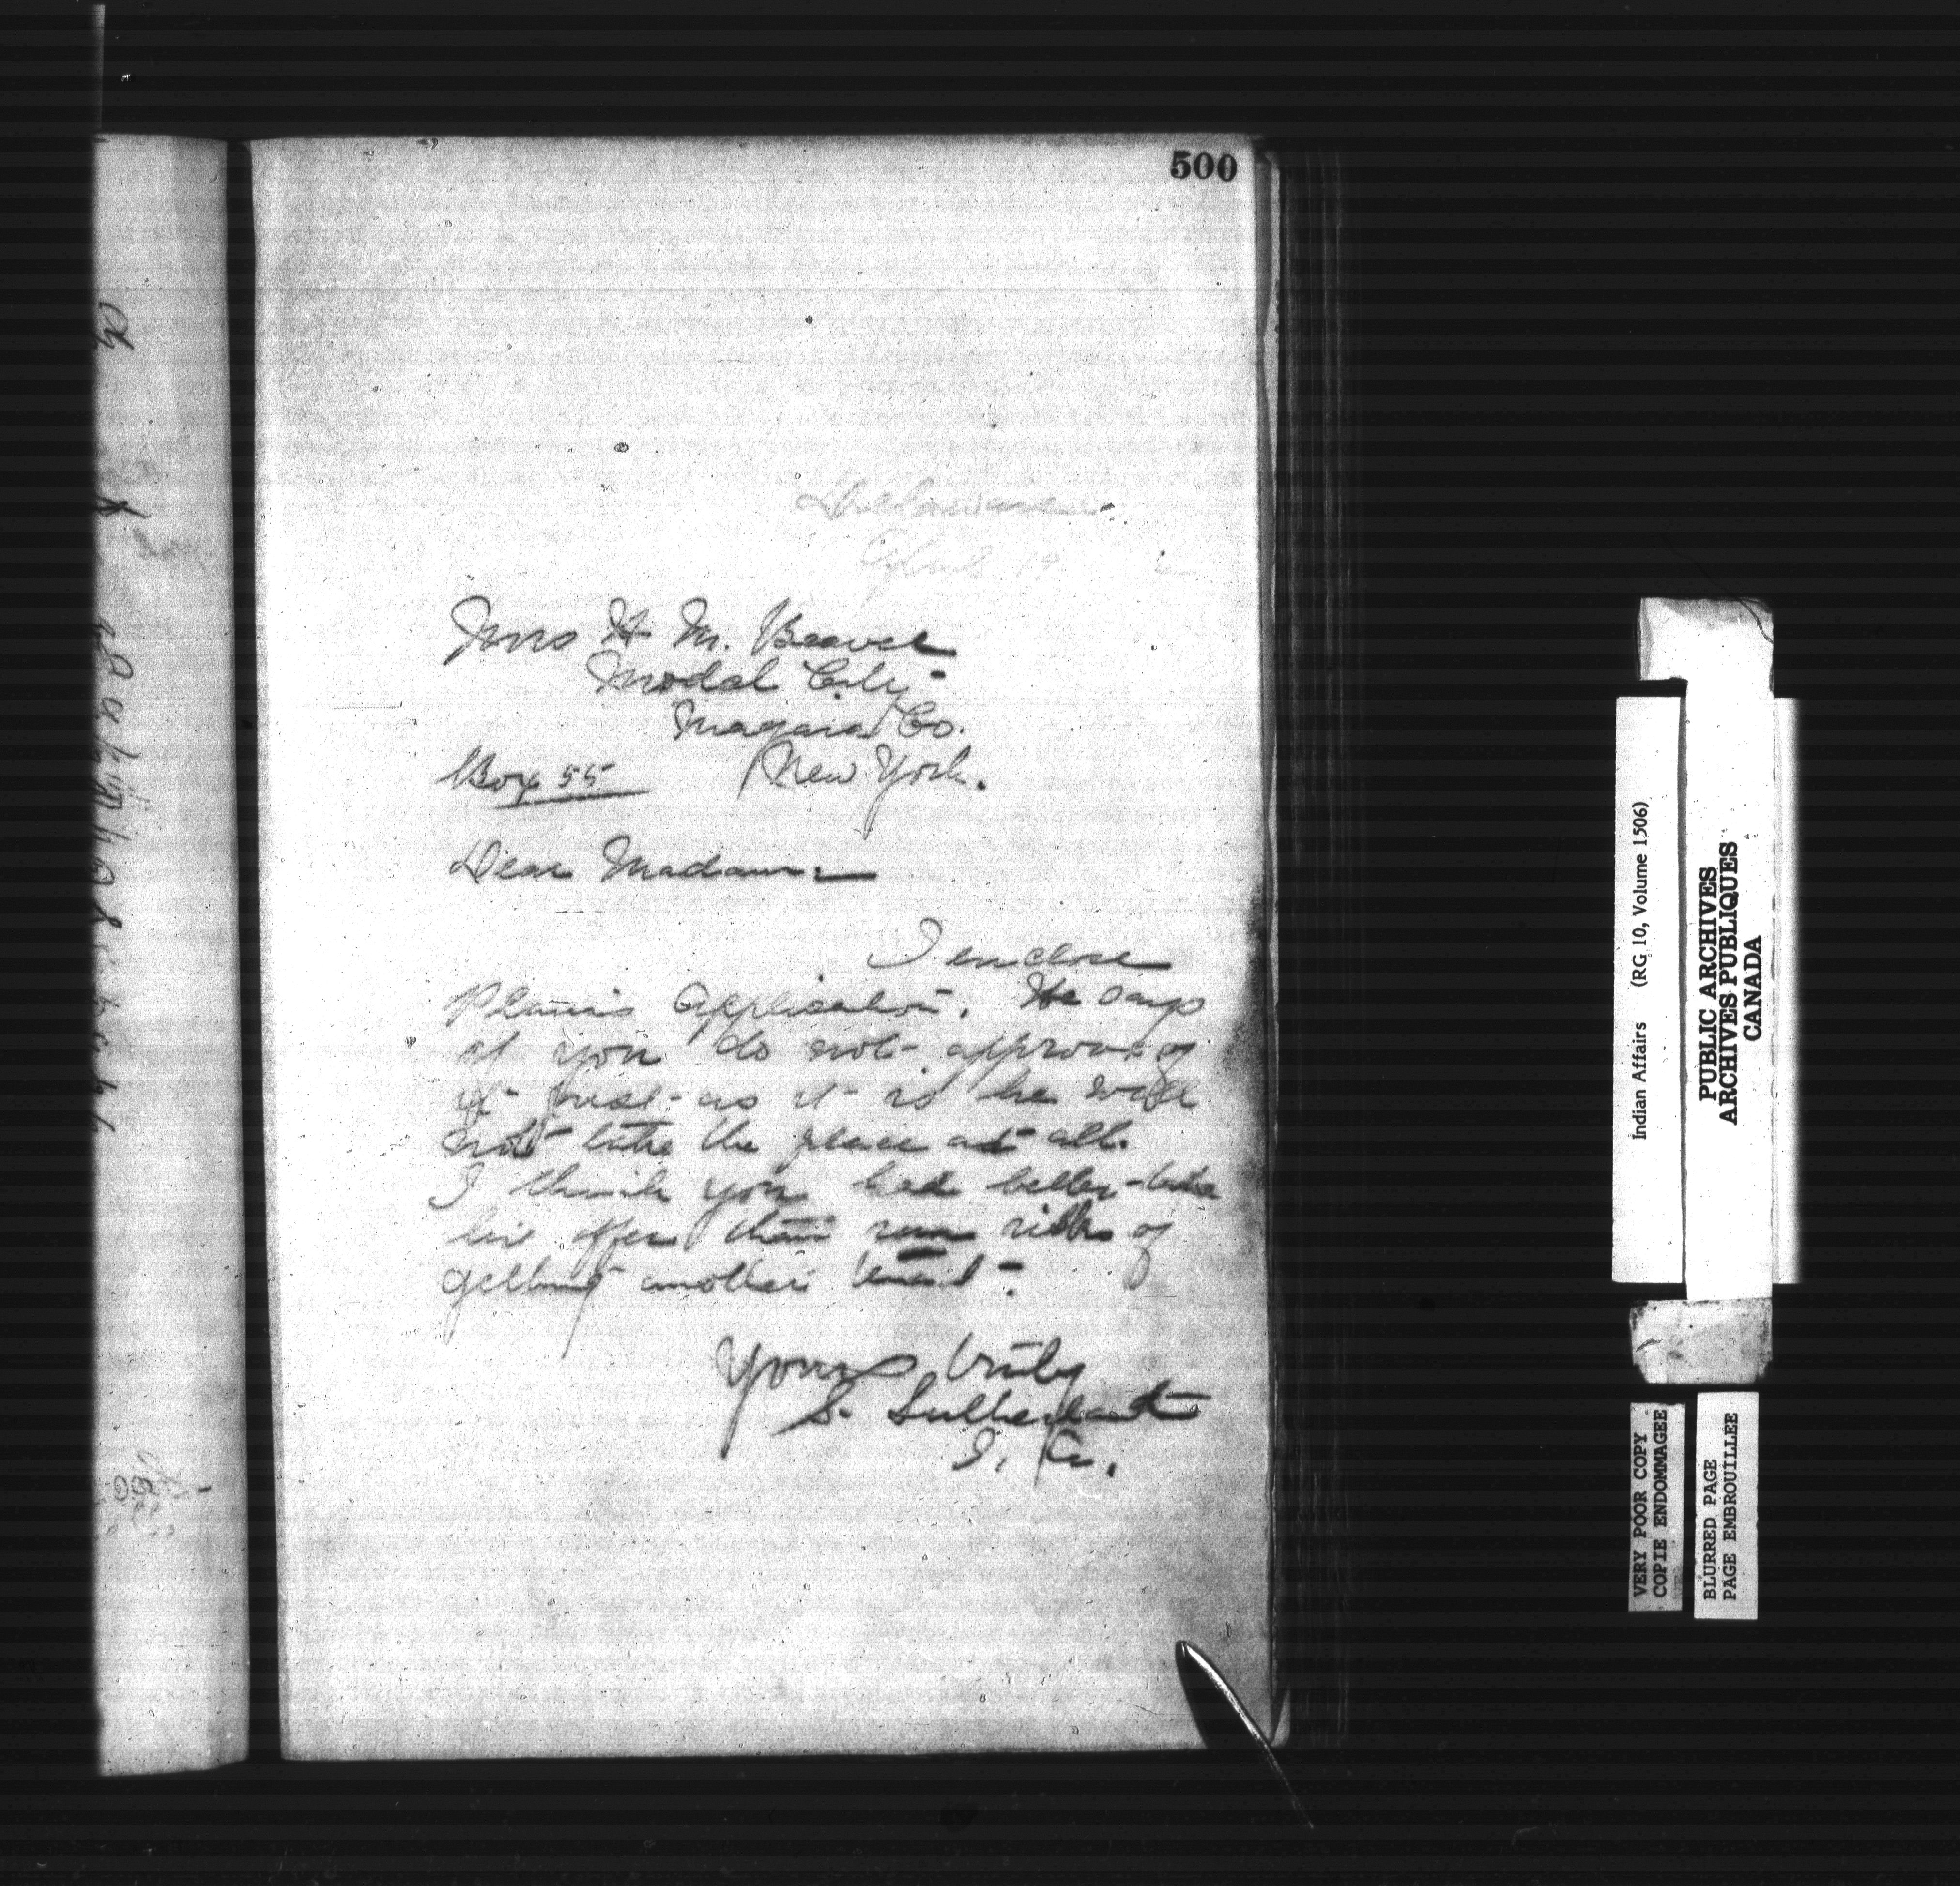 500
Delaware
April 19
Mrs H M. Beaver
Model City
Niagara Co.
Box 55 New York.
Dear Madam:
I enclose
Plain's Application. He says
if you do not approve of
it just as it is he will
not take the place at all.
I think you had better take
his offer than run risks of
getting another tenant.
Yours truly
S. Sutherland
I. A.
Indian Affairs (RG 10, Volume 1506)
PUBLIC ARCHIVES
ARCHIVES PUBLIQUES
CANADA
VERY POOR COPY
COPIE ENDOMMAGEE
BLURRED PAGE
PAGE EMBROUILLEE